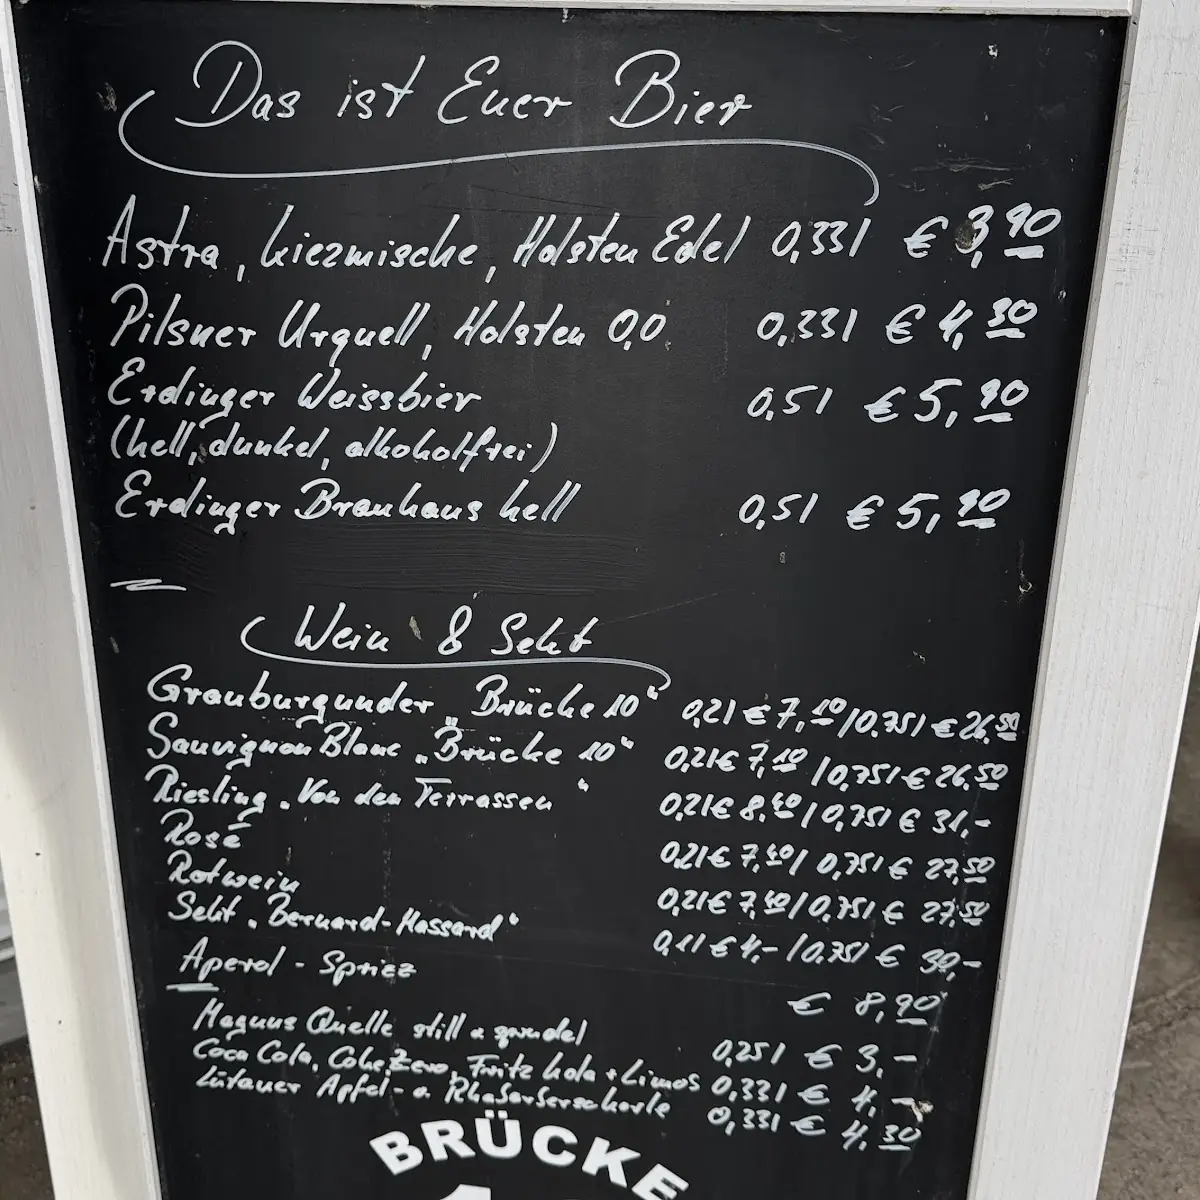 Das ist Euer Bier
Astra, Kiezmische, Holsten Edel 0,33l € 3,90
Pilsner Urquell, Holsten 0,0 0,33l € 4,30
Erdinger Weissbier 0,5l € 5,90
(hell, dunkel, alkoholfrei)
Erdinger Brauhaus hell 0,5l € 5,90
Wein & Sekt
Grauburgunder „Brücke 10“ 0,2l € 7,10 / 0,75l € 26,50
Sauvignon Blanc „Brücke 10“ 0,2l € 7,10 / 0,75l € 26,50
Riesling „Von den Terrassen“ 0,2l € 8,40 / 0,75l € 31,-
Rosé 0,2l € 7,40 / 0,75l € 27,50
Rotwein 0,2l € 7,40 / 0,75l € 27,50
Sekt „Bernard-Massard“ 0,1l € 4,- / 0,75l € 30,-
Aperol - Spriez € 8,90
Magnus Quelle still & sprudel 0,25l € 3,-
Coca Cola, Coke Zero, Fritz Kola + Limos 0,33l € 4,-
Lütauer Apfel- o. Rhabarberschorle 0,33l € 4,30
BRÜCKE